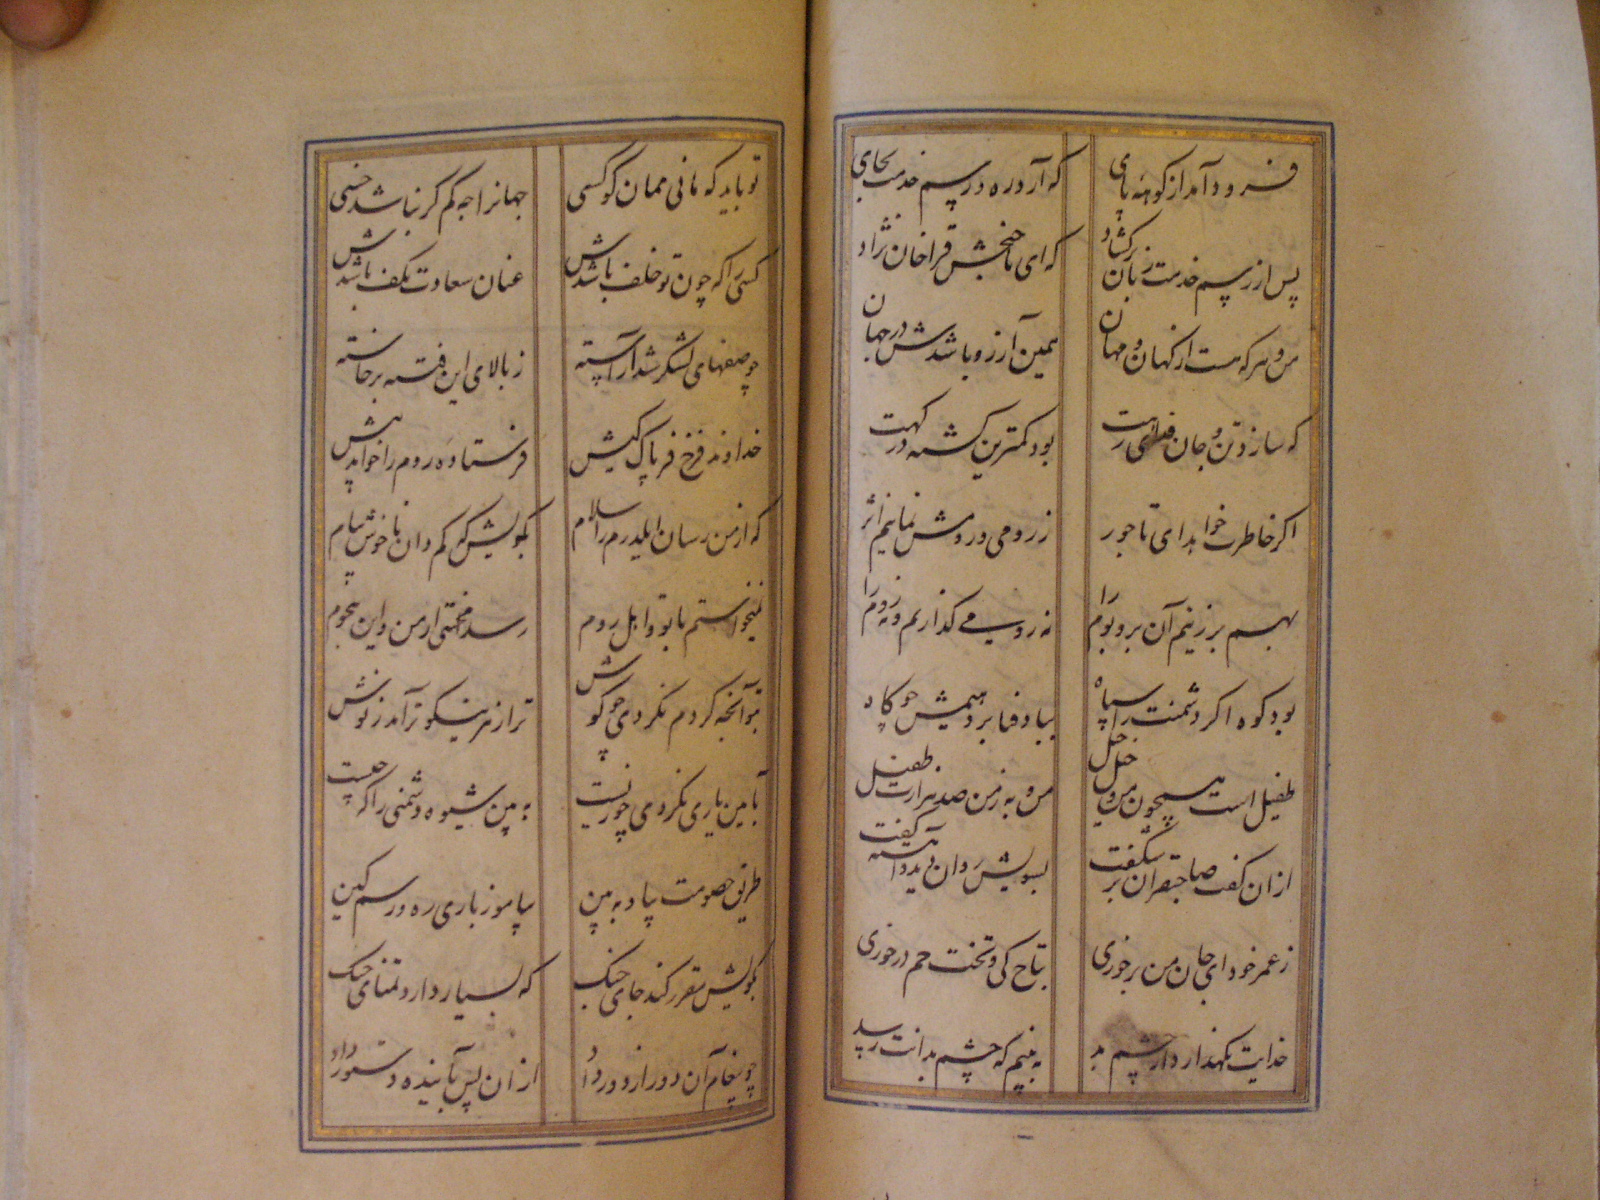 فرود آمد از کوهه پای
که آرد ره و رسم خدمت بجای
پس از رسم خدمت زبان بر کشاد
که ای تاج بخش قراخان نژاد
من و هر که هست از کهان و مهان
همین آرزو باشدش در جهان
که سازد تن و جان فدای رهت
بود کمترین کشته در کهت
اکر خاطرت خواهد ای تاجور
ز رومی و رومش نمانیم اثر
بهم بر زنیم آن بر و بوم را
نه رومی کذاریم و نه روم را
بود کوه اکر دشمنت را سپاه
بباد فنا بردهیمش چو کاه
طفیل است همچون من و خیل
من و به ز من صد هزارت طفیل
ازان کفت صاحبقران بر شکفت
بسویش روان دید و آهسته کفت
ز عمر خود ای جان من برخوری
بتاج کی و تخت جم درخوری
خدایت نکهدارد از چشم بد
نه بینم که چشم بدانت رسد
تو باید که مانی ممان کو کسی
جهانرا چه کم کر نباشد خسی
کسی را که چون تو خلف باشدش
عنان سعادت بکف باشدش
چو صفهای لشکر شد آراسته
ز بالای این فتنه برخاسته
خداوند فرخ فر پاک کیش
فرستاده روم را خواند پیش
که از من رسان ایلدرم را سلام
بکویش که کم دان ناخوش پیام
نمیخواستم با تو و اهل روم
رسد محنتی از من و این هجوم
بتو آنچه کردم نکردی چو کوش
ترا زهر نیکوتر آمد ز نوش
بمن یاری نکردی چو زیست
به بین شیوه دشمنی را که چیست
طریق خصومت بیا و ببین
بیاموز باری ره و رسم کین
بکویش مقرر کند جای جنک
که بسیار دارد تمنای جنک
چو پیغام آن دور از دور داد
ازان پس بآینده دستور داد